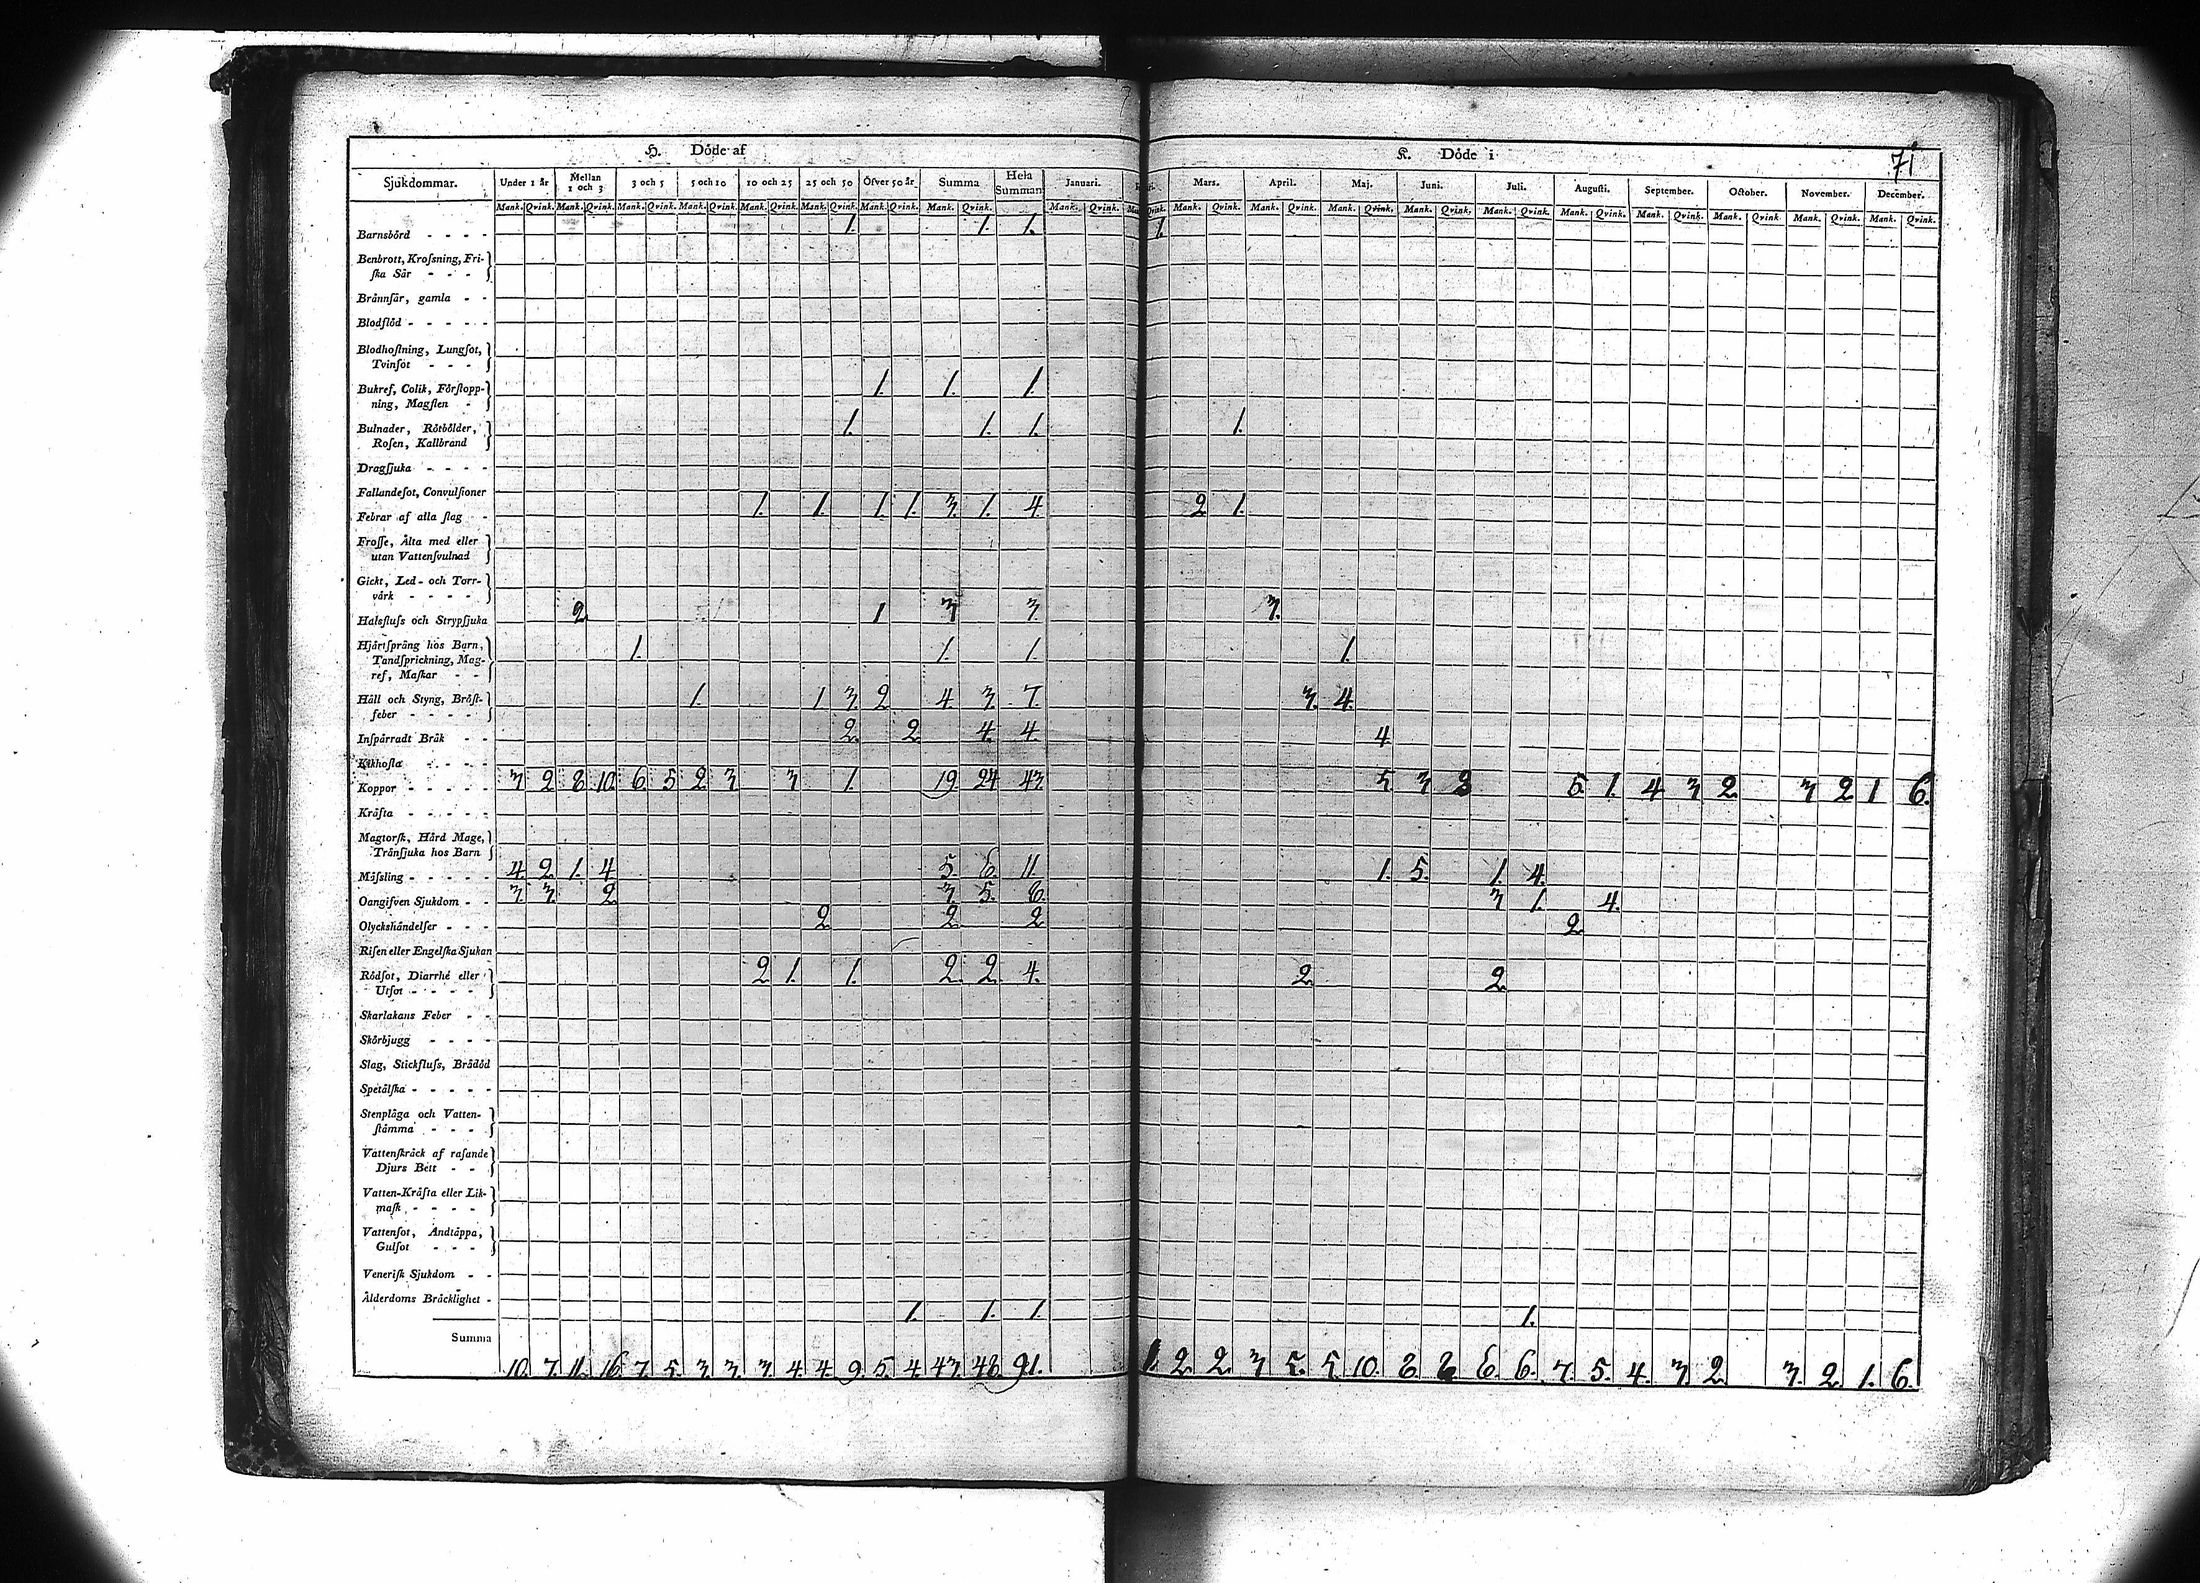 71
H. Döde af
K. Döde i
Sjukdommar. Under 1 år Mellan 1 och 3 3 och 5 5 och 10 10 och 25 25 och 50 Öfver 50 år Summa Hela Summan Januari. Mars. April. Maj. Juni. Juli. Augusti. September. October. November. December.
Mank. Qvink. Mank. Qvink. Mank. Qvink. Mank. Qvink. Mank. Qvink. Mank. Qvink. Mank. Qvink. Mank. Qvink. Mank. Qvink. Qvink. Mank. Qvink. Mank. Qvink. Mank. Qvink. Mank. Qvink. Mank. Qvink. Mank. Qvink. Mank. Qvink. Mank. Qvink. Mank. Qvink. Mank. Qvink.
Barnsbörd - - - - 1. 1. 1. 1.
Benbrott, Krosſning, Fri-
ſka Sår - - -
Brännſår, gamla - -
Blodflöd - - - - -
Blodhoſtning, Lungſot,
Tvinſot - - -
Bukref, Colik, Förſtopp-
ning, Magſten - 1. 1. 1.
Bulnader, Rötbölder,
Roſen, Kallbrand 1. 1. 1. 1.
Dragſjuka - - - -
Fallandeſot, Convulſioner
Febrar af alla ſlag - 1. 1. 1. 1. 3. 1. 4. 2 1.
Froſſe, Älta med eller
utan Vattenſvulnad
Gickt, Led- och Torr-
värk - - - -
Halsfluſs och Strypſjuka 2 1 3 3. 3.
Hjärtſpräng hos Barn,
Tandſprickning, Mag-
ref, Maſkar - - 1. 1. 1. 1.
Håll och Styng, Bröſt-
feber - - - - 1. 1 3. 2 4 3. 7. 3. 4.
Inſpärradt Bråk - - 2. 2. 4. 4 4.
Kikhoſta - - - -
Koppor - - - - - 3 2 8 10. 6. 5 2 3 3 1. 19. 24 43. 5 3 3 5. 1. 4 3 2 3 2 1 6.
Kräfta - - - - -
Magtorſk, Hård Mage,
Tränſjuka hos Barn
Måſsling - - - - - 4. 2 1. 4 5. 6. 11. 1. 5. 1. 4.
Oangifven Sjukdom - - 3. 3. 2 3. 5. 8. 3 1. 4.
Olyckshändelſer - - - 2 2. 2 2.
Riſen eller Engelſka Sjukan
Rödſot, Diarrhé eller
Utſot - - - - 2 1. 1. 2. 2 4. 2. 2.
Skarlakans Feber - -
Skörbjugg - - - -
Slag, Stickfluſs, Brådöd
Spetälſka - - - - -
Stenplåga och Vatten-
ſtämma - - -
Vattenſkräck af raſande
Djurs Bett - -
Vatten-Kräfta eller Lik-
maſk - - - -
Vattenſot, Andtäppa,
Gulſot - - -
Veneriſk Sjukdom - -
Ålderdoms Bräcklighet - 1. 1. 1. 1.
Summa 10. 7. 11. 16 7. 5. 3 3. 3. 4. 4. 9. 5. 4. 43. 48. 91. 1. 2 2. 3 5. 5. 10. 8. 8. 6. 6. 7. 5. 4. 3 2. 3. 2. 1. 6.